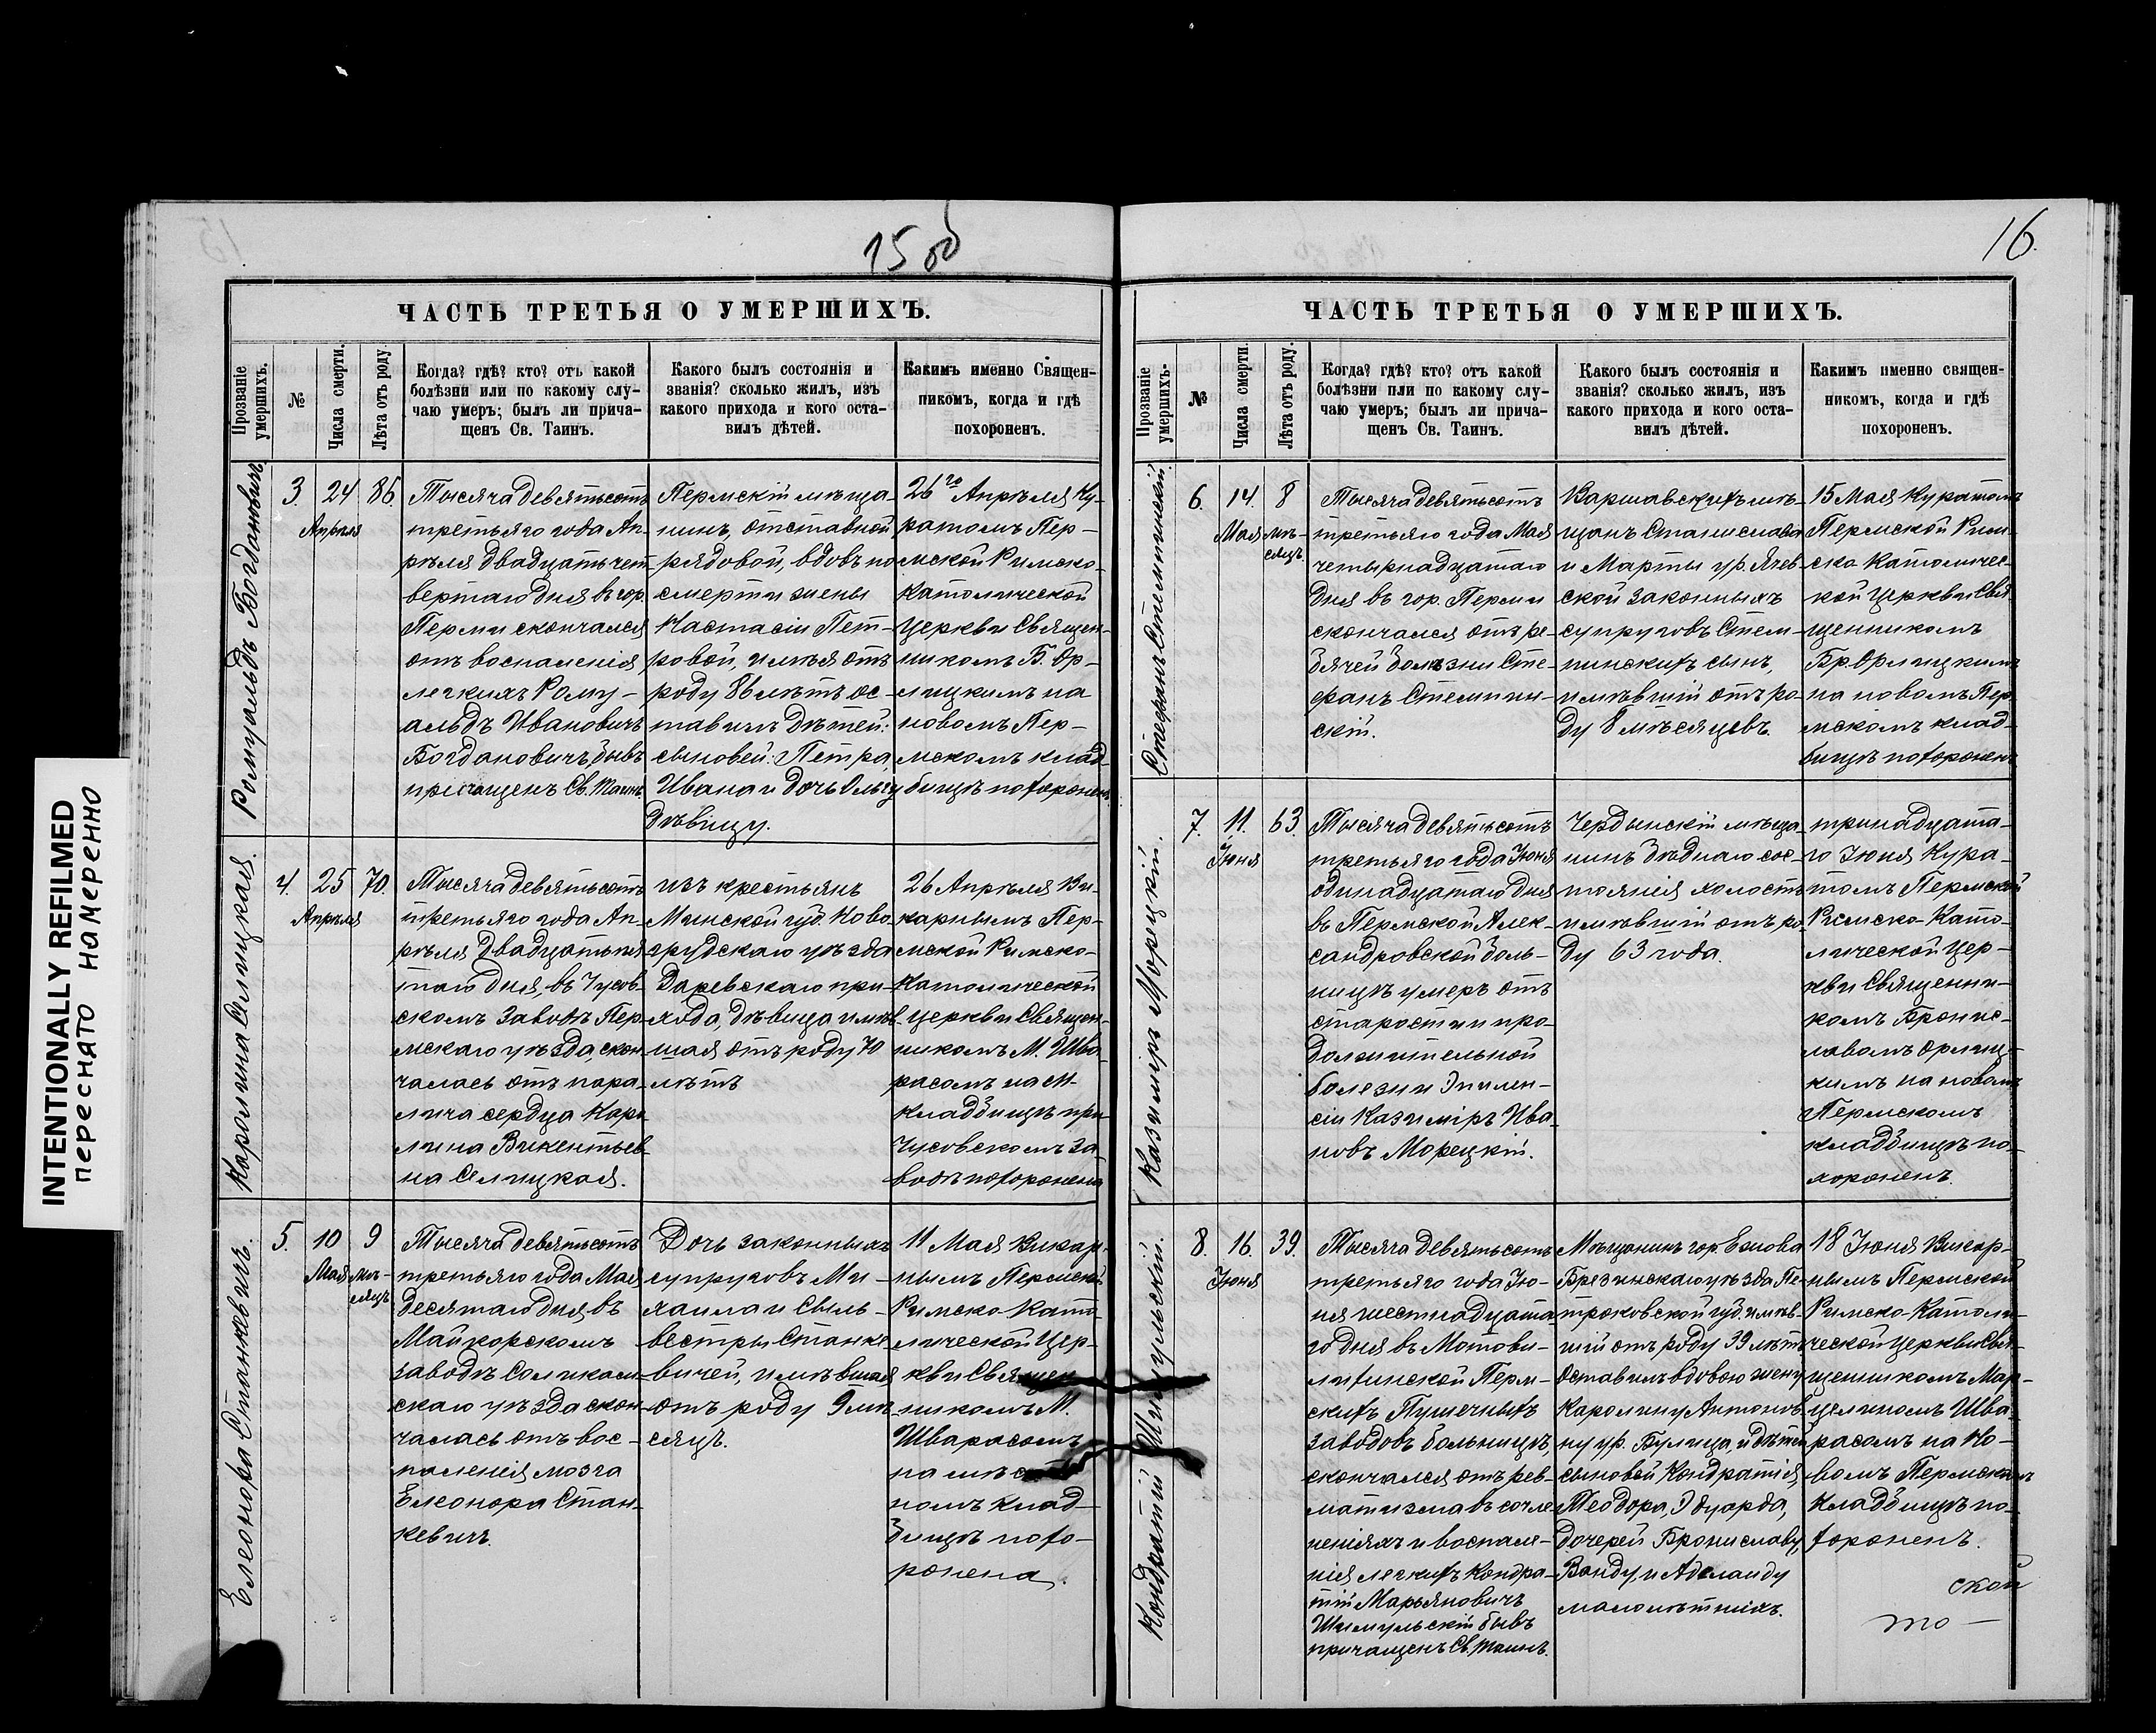 INTENTIONALLY REFILMED
переснято намеренно
15 об
ЧАСТЬ ТРЕТЬЯ О УМЕРШИХЪ.
Прозваніе умершихъ.
№
Числа смерти.
Лѣта отъ роду.
Когда? гдѣ? кто? отъ какой
болѣзни или по какому слу-
чаю умеръ; былъ ли прича-
щенъ Св. Таинъ.
Какого былъ состоянія и
званія? сколько жилъ, изъ
какого прихода и кого оста-
вилъ дѣтей.
Какимъ именно Священ-
никомъ, когда и гдѣ
похороненъ.
Ромуальдъ Богдановичъ
3. 24 86.
Апрѣля
Тысяча девятьсотъ
третьяго года Ап-
рѣля двадцать чет-
вертаго дня въ гор.
Перми скончался
отъ воспаленія
легкихъ Рому-
альдъ Ивановичъ
Богдановичъ, бывъ
причащенъ Св. Таинъ.
Пермскій мѣща-
нинъ, отставной
рядовой, вдовъ по
смерти жены
Настасіи Пет-
ровой, имѣя отъ
роду 86 лѣтъ ос-
тавилъ дѣтей:
сыновей: Петра,
Ивана и дочь Ольгу
дѣвицу.
26го Апрѣля Ку-
ратомъ Пер-
мской Римско-
Католической
Церкви Священ-
никомъ Б. Ор-
лицкимъ на
новомъ Пер-
мскомъ клад-
бищѣ похороненъ
Каролина Селицкая.
4. 25 70.
Апрѣля
Тысяча девятьсотъ
третьяго года Ап-
рѣля двадцать пя-
таго дня, въ Чусов-
скомъ заводѣ Пер-
мскаго уѣзда, скон-
чалась отъ пара-
лича сердца Каро-
лина Викентьев-
на Селицкая.
изъ крестьянъ
Минской губ. Ново-
грудскаго уѣзда
Даревскаго при-
хода, дѣвица имѣв-
шая отъ роду 70
лѣтъ
26 Апрѣля Ви-
карнымъ Пер-
мской Римско-
Католической
церкви Священ-
никомъ М. Шва-
расомъ на м.
кладбищѣ при
Чусовскомъ за-
водѣ похоронена
Елеонора Станкевичъ.
5. 10 9
Мая мѣ-
сяцъ
Тысяча девятьсотъ
третьяго года Мая
десятаго дня въ
Майкорскомъ
заводѣ Соликам-
скаго уѣзда скон-
чалась отъ вос-
паленія мозга
Елеонора Стан-
кевичъ.
Дочь законныхъ
супруговъ Ми-
хаила и Сыль-
вестры Станке-
вичей, имѣвшая
отъ роду 9 мѣ-
сяцъ.
11 Мая Викар-
нымъ Пермской
Римско-Като-
лической Цер-
кви Священ-
никомъ М.
Шварасомъ
на мѣст-
номъ клад-
бищѣ похо-
ронена.
16.
ЧАСТЬ ТРЕТЬЯ О УМЕРШИХЪ.
Прозваніе умершихъ.
№
Числа смерти.
Лѣта отъ роду.
Когда? гдѣ? кто? отъ какой
болѣзни или по какому слу-
чаю умеръ; былъ ли прича-
щенъ Св. Таинъ.
Какого былъ состоянія и
званія? сколько жилъ, изъ
какого прихода и кого оста-
вилъ дѣтей.
Какимъ именно священ-
никомъ, когда и гдѣ
похороненъ.
Стефанъ Стемпинскій.
6. 14. 8
Мая мѣ-
сяцъ
Тысяча девятьсотъ
третьяго года Мая
четырнадцатаго
дня въ гор. Перми
скончался отъ ре-
бячей болѣзни Сте-
фанъ Стемпин-
скій.
Варшавскихъ мѣ-
щанъ Станислава
и Марты ур. Ячев-
ской законныхъ
супруговъ Стем-
пинскихъ сынъ,
имѣвшій отъ ро-
ду 8 мѣсяцевъ.
15 Мая Куратомъ
Пермской Рим-
ско Католичес-
кой Церкви Свя-
щенникомъ
Бр. Орлицкимъ
на новомъ Пер-
мскомъ клад-
бищѣ похороненъ
Казимиръ Морецкій.
7. 11. 63.
Іюня
Тысяча девятьсотъ
третьяго года Іюня
одинадцатаго дня
въ Пермской Алек-
сандровской боль-
ницѣ умеръ отъ
старости и про-
должительной
болезни Эпилеп-
сіи Казиміръ Ива-
новъ Морецкій.
Чердынскій мѣща-
нинъ бѣднаго сос-
тоянія холостъ
имѣвшій отъ ро-
ду 63 года.
тринадцата-
го Іюня Кура-
томъ Пермской
Римско-Като-
лической Цер-
кви Священни-
комъ Бронис-
лавомъ Орлиц-
кимъ на новомъ
Пермскомъ
кладбищѣ по-
хороненъ.
Кондратій Шимульскій.
8. 16. 39.
Іюня
Тысяча девятьсотъ
третьяго года Ію-
ня шестнадцата-
го дня въ Мотови-
лихинской Перм-
скихъ Пушечныхъ
заводовъ больницѣ,
скончался отъ рев-
матизма въ сочле-
неніяхъ и воспале-
нія легкихъ Кондра-
тій Марьяновичъ
Шимульскій бывъ
причащенъ Св. Таинъ.
Мѣщанинъ гор. Ежова
Брезинскаго уѣзда Пе-
троковской губ. имѣв-
шій отъ роду 39 лѣтъ
Оставилъ вдовою жену
Каролину Антонов-
ну ур. Булица, и дѣтей
сыновей Кондратія,
Теодора, Эдуарда,
дочерей Брониславу,
Ванду, и Аделаиду
малолѣтнихъ.
18 Іюня Викар-
нымъ Пермской
Римско-Католи-
ческой Церкви Свя-
щенникомъ Мар-
целиномъ Шва-
расомъ на Но-
вомъ Пермскомъ
Кладбищѣ по-
хороненъ.
ской
то-